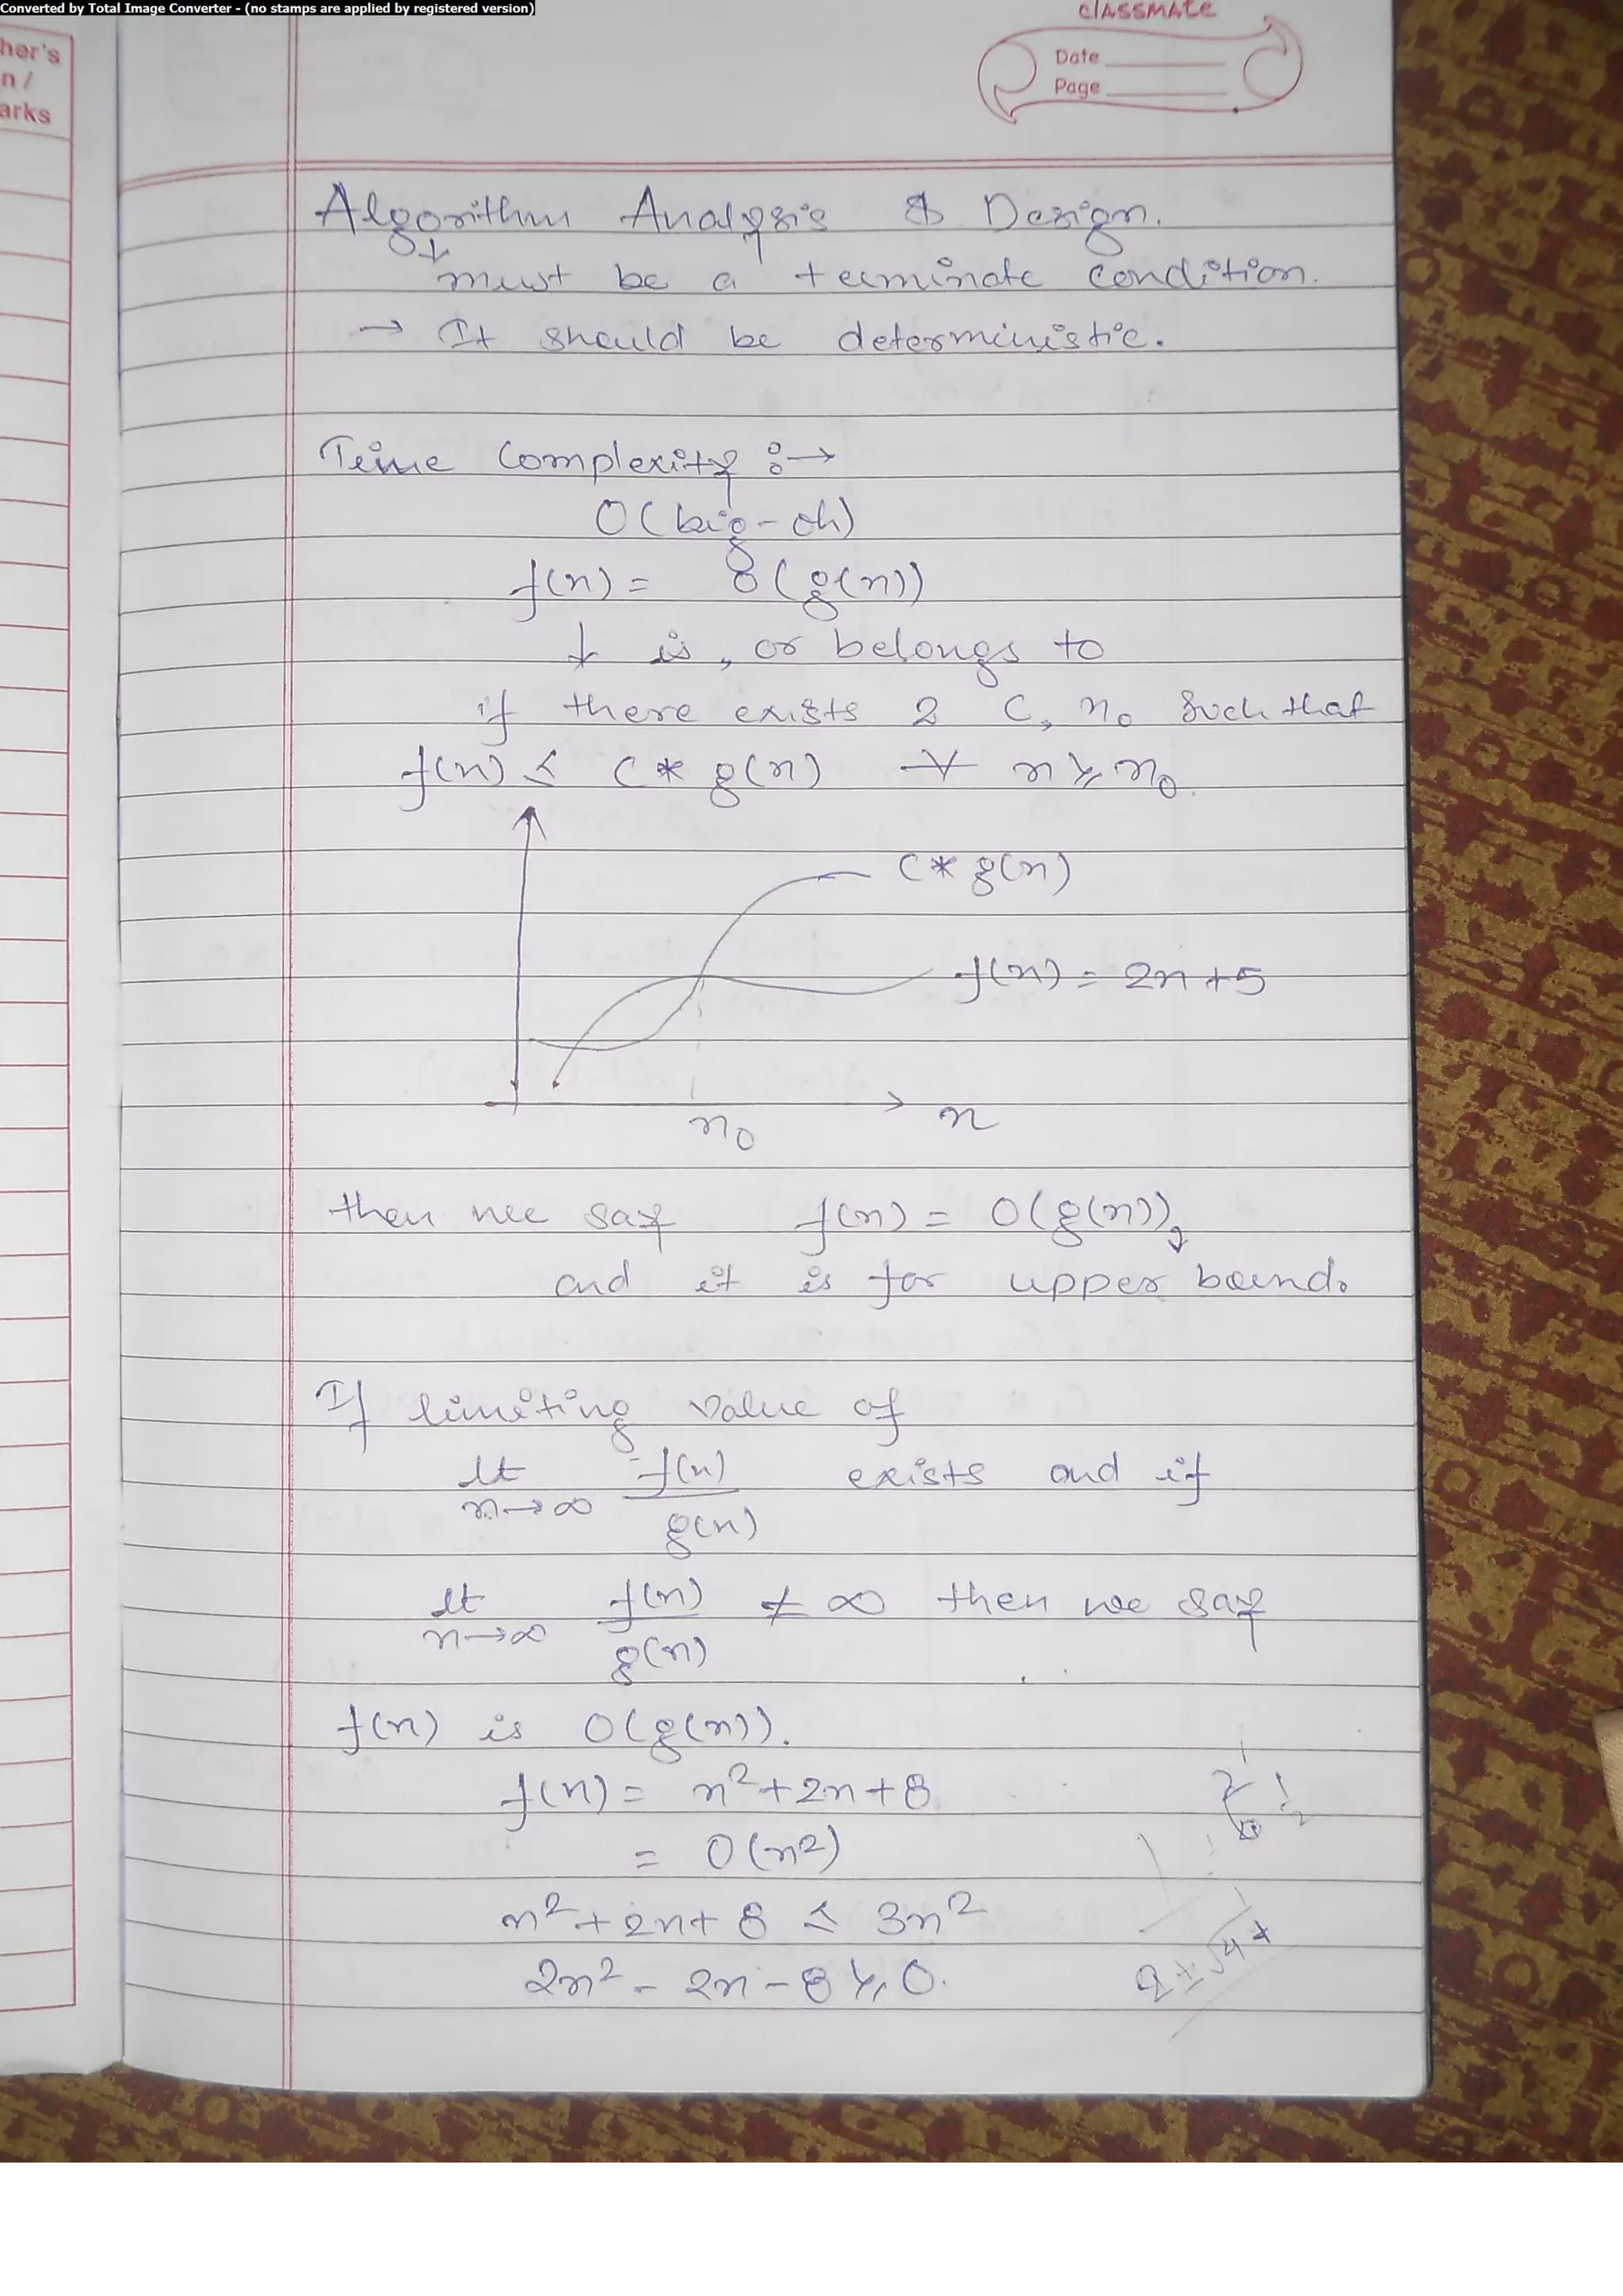 Converted by Total Image Converter - (no stamps are applied by registered version)
her's
n /
arks
classmate
Date
Page
Algorithm Analysis & Design.
must be a terminate condition.
→ It should be deterministic.
Time Complexity :→
O(big-oh)
f(n) = O(g(n))
↓ is, or belongs to
if there exists 2 C, n₀ such that
f(n) ≤ C * g(n) ∀ n ≥ n₀.
C * g(n)
f(n) = 2n + 5
n₀
n
then we say f(n) = O(g(n)),
and it is for upper bound.
If limiting value of
lt n→∞ f(n)/g(n) exists and if
lt n→∞ f(n)/g(n) ≠ ∞ then we say
f(n) is O(g(n)).
f(n) = n² + 2n + 8
= O(n²)
n² + 2n + 8 ≤ 3n²
2n² - 2n - 8 ≥ 0.
2 ± √4 +